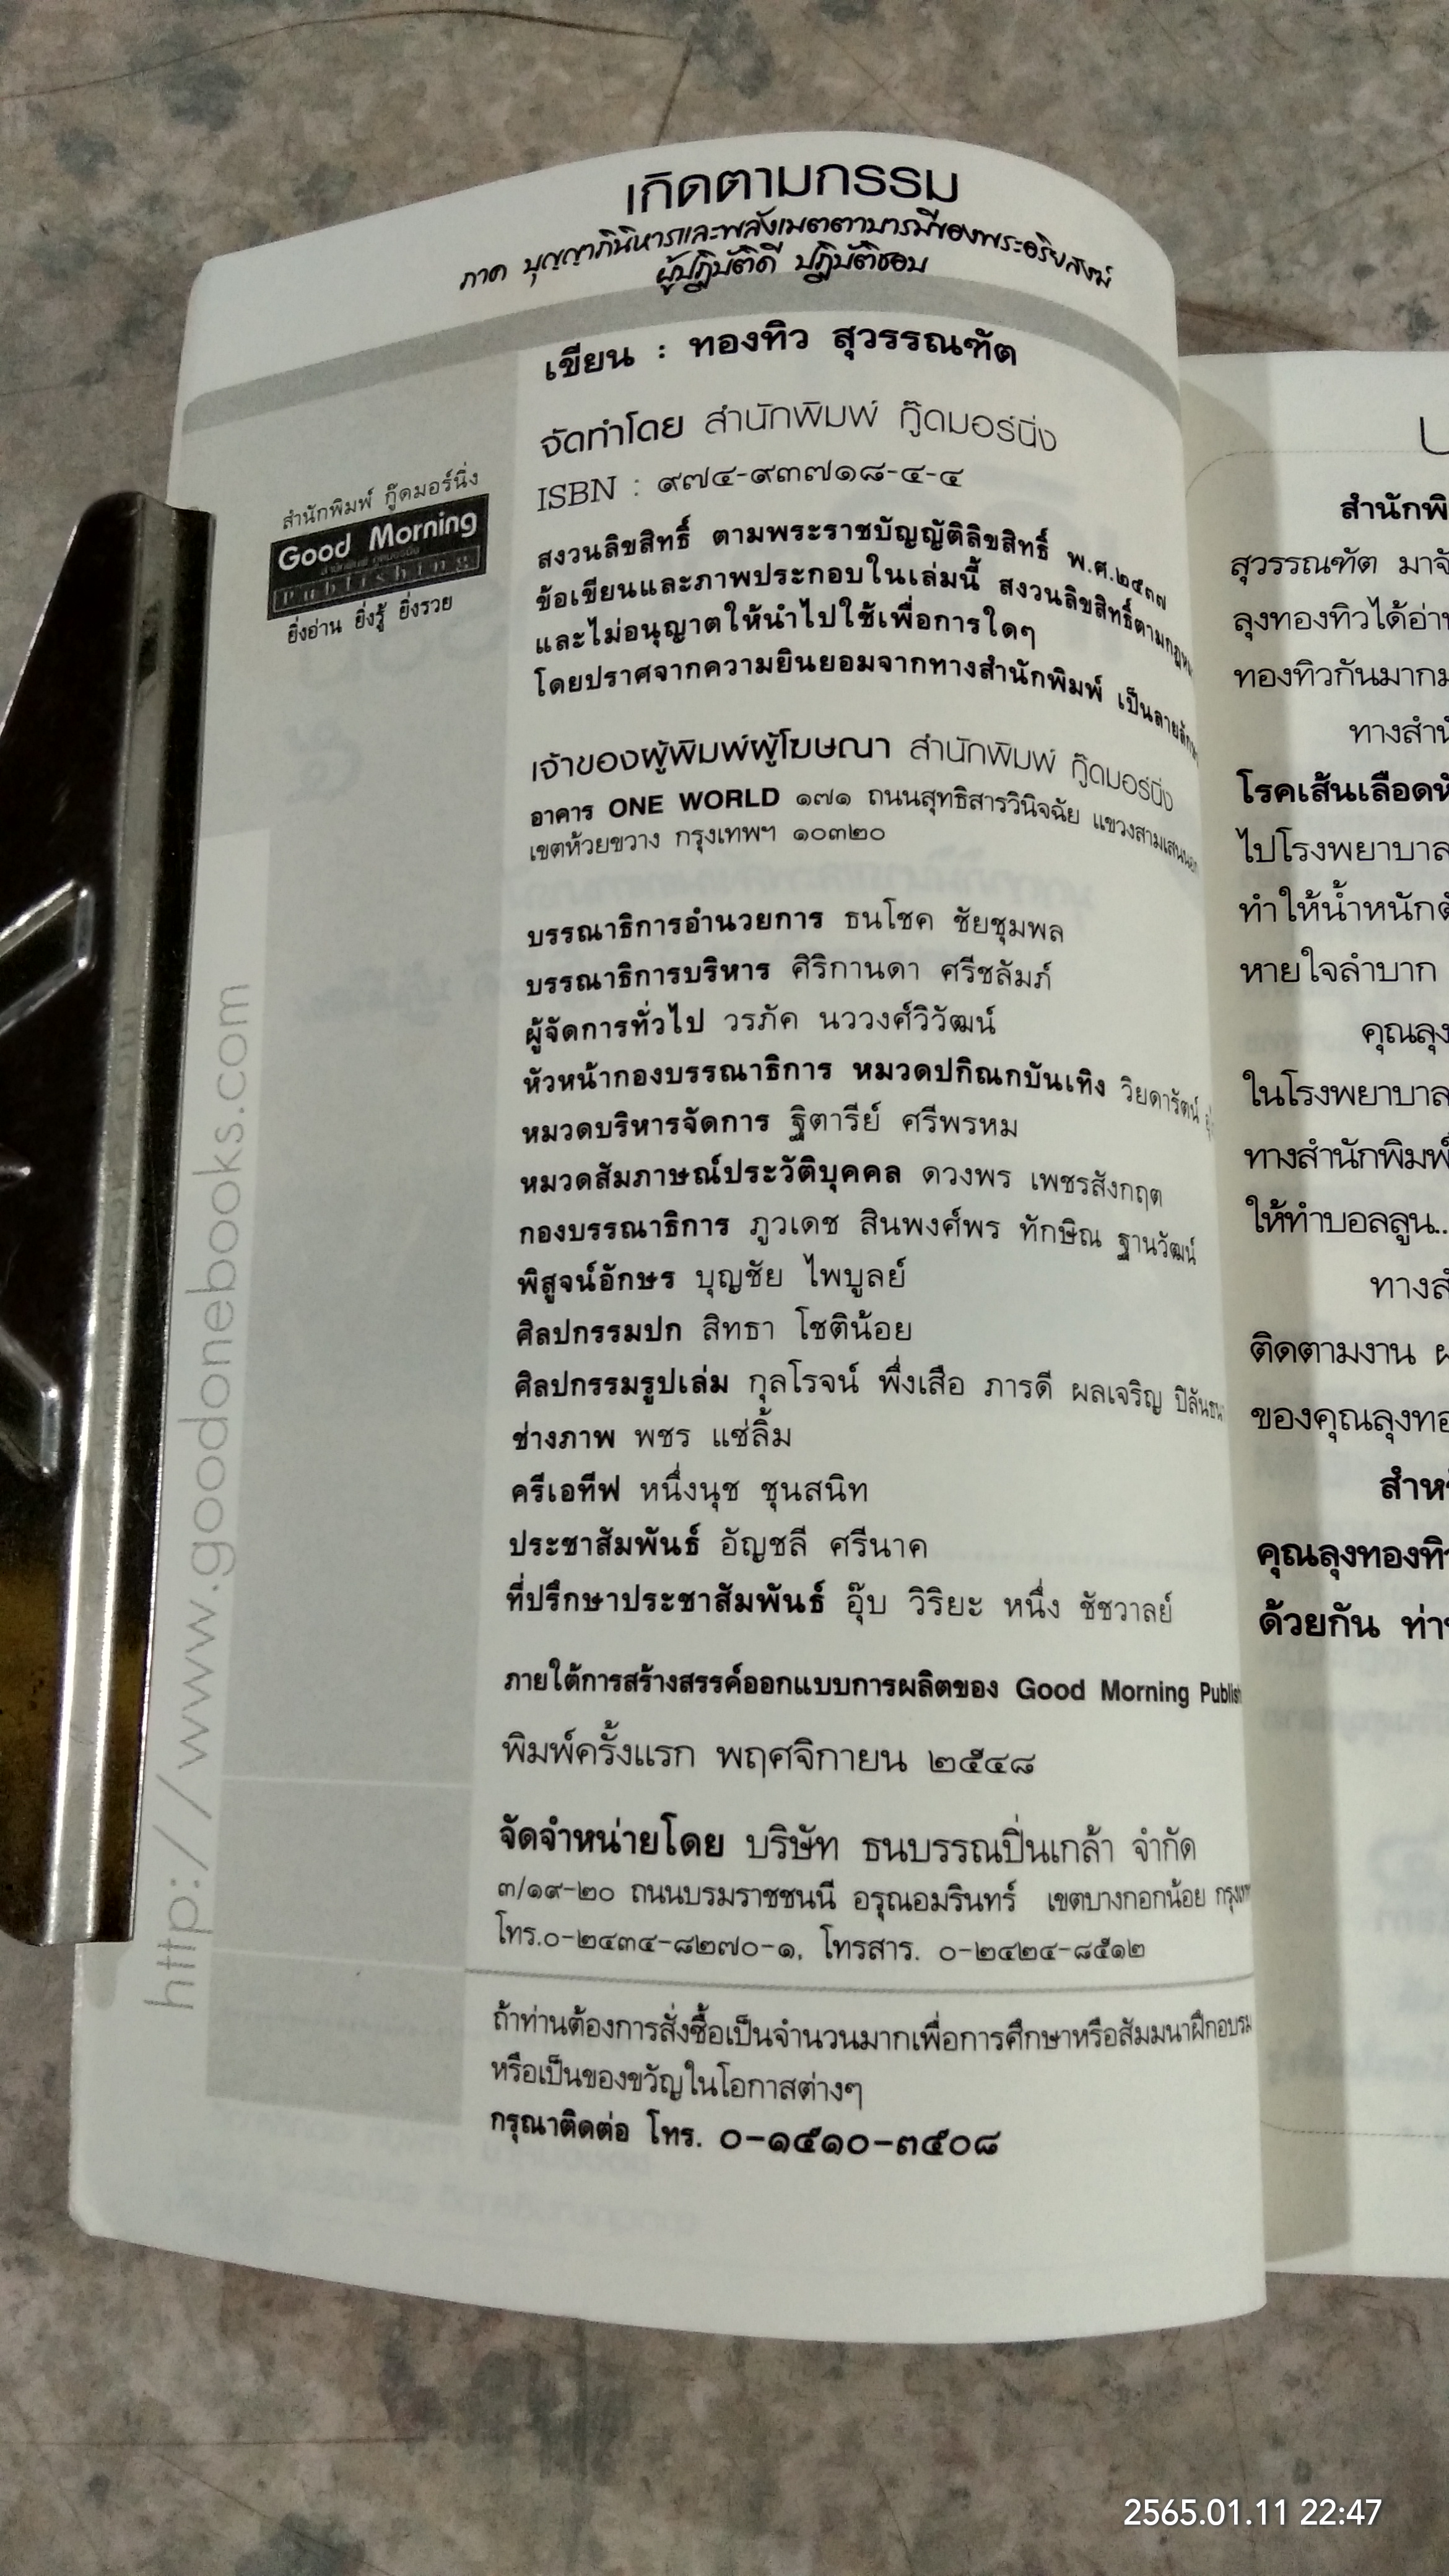 เกิดตามกรรม
ภาค บุญญาภินิหารและพลังเมตตาบารมีของพระอริยสงฆ์
ผู้ปฏิบัติดี ปฏิบัติชอบ
เขียน : ทองทิว สุวรรณฑัต
จัดทำโดย สำนักพิมพ์ กู๊ดมอร์นิ่ง
ISBN : ๙๗๔-๙๓๗๑๘-๔-๔
สงวนลิขสิทธิ์ ตามพระราชบัญญัติลิขสิทธิ์ พ.ศ.๒๕๓๗
ข้อเขียนและภาพประกอบในเล่มนี้ สงวนลิขสิทธิ์ตามกฎหมาย
และไม่อนุญาตให้นำไปใช้เพื่อการใดๆ
โดยปราศจากความยินยอมจากทางสำนักพิมพ์ เป็นลายลัก
เจ้าของผู้พิมพ์ผู้โฆษณา สำนักพิมพ์ กู๊ดมอร์นิ่ง
อาคาร ONE WORLD ๑๗๑ ถนนสุทธิสารวินิจฉัย แขวงสามเสนนอก
เขตห้วยขวาง กรุงเทพฯ ๑๐๓๒๐
บรรณาธิการอำนวยการ ธนโชค ชัยชุมพล
บรรณาธิการบริหาร ศิริกานดา ศรีชลัมภ์
ผู้จัดการทั่วไป วรภัค นววงศ์วิวัฒน์
หัวหน้ากองบรรณาธิการ หมวดปกิณกบันเทิง วิยดารัตน์
หมวดบริหารจัดการ ฐิตารีย์ ศรีพรหม
หมวดสัมภาษณ์ประวัติบุคคล ดวงพร เพชรสังกฤต
กองบรรณาธิการ ภูวเดช สินพงศ์พร ทักษิณ ฐานวัฒน์
พิสูจน์อักษร บุญชัย ไพบูลย์
ศิลปกรรมปก สิทธา โชติน้อย
ศิลปกรรมรูปเล่ม กุลโรจน์ พึ่งเสือ ภารดี ผลเจริญ
ช่างภาพ พชร แซ่ลิ้ม
ครีเอทีฟ หนึ่งนุช ชุนสนิท
ประชาสัมพันธ์ อัญชลี ศรีนาค
ที่ปรึกษาประชาสัมพันธ์ อุ๊บ วิริยะ หนึ่ง ชัชวาลย์
ภายใต้การสร้างสรรค์ออกแบบการผลิตของ Good Morning Publis
พิมพ์ครั้งแรก พฤศจิกายน ๒๕๔๘
จัดจำหน่ายโดย บริษัท ธนบรรณปิ่นเกล้า จำกัด
๓/๑๙-๒๐ ถนนบรมราชชนนี อรุณอมรินทร์ เขตบางกอกน้อย กรุงเทพ
โทร.๐-๒๔๓๔-๘๒๗๐-๑, โทรสาร. ๐-๒๔๒๔-๘๕๑๒
ถ้าท่านต้องการสั่งซื้อเป็นจำนวนมากเพื่อการศึกษาหรือสัมมนาฝึกอบรม
หรือเป็นของขวัญในโอกาสต่างๆ
กรุณาติดต่อ โทร. ๐-๑๕๑๐-๓๕๐๘
สำนักพิมพ์ กู๊ดมอร์นิ่ง
Good Morning
Publishing
ยิ่งอ่าน ยิ่งรู้ ยิ่งรวย
http://www.goodonebooks.com
สำนักพิ
สุวรรณฑัต มาจั
ลุงทองทิวได้อ่าน
ทองทิวกันมากม
ทางสำนั
โรคเส้นเลือดหั
ไปโรงพยาบาล
ทำให้น้ำหนักตั
หายใจลำบาก
คุณลุง
ในโรงพยาบาล
ทางสำนักพิมพ์
ให้ทำบอลลูน..
ทางสำ
ติดตามงาน ผ
ของคุณลุงทอ
สำหรั
คุณลุงทองทิว
ด้วยกัน ท่าน
2565.01.11 22:47